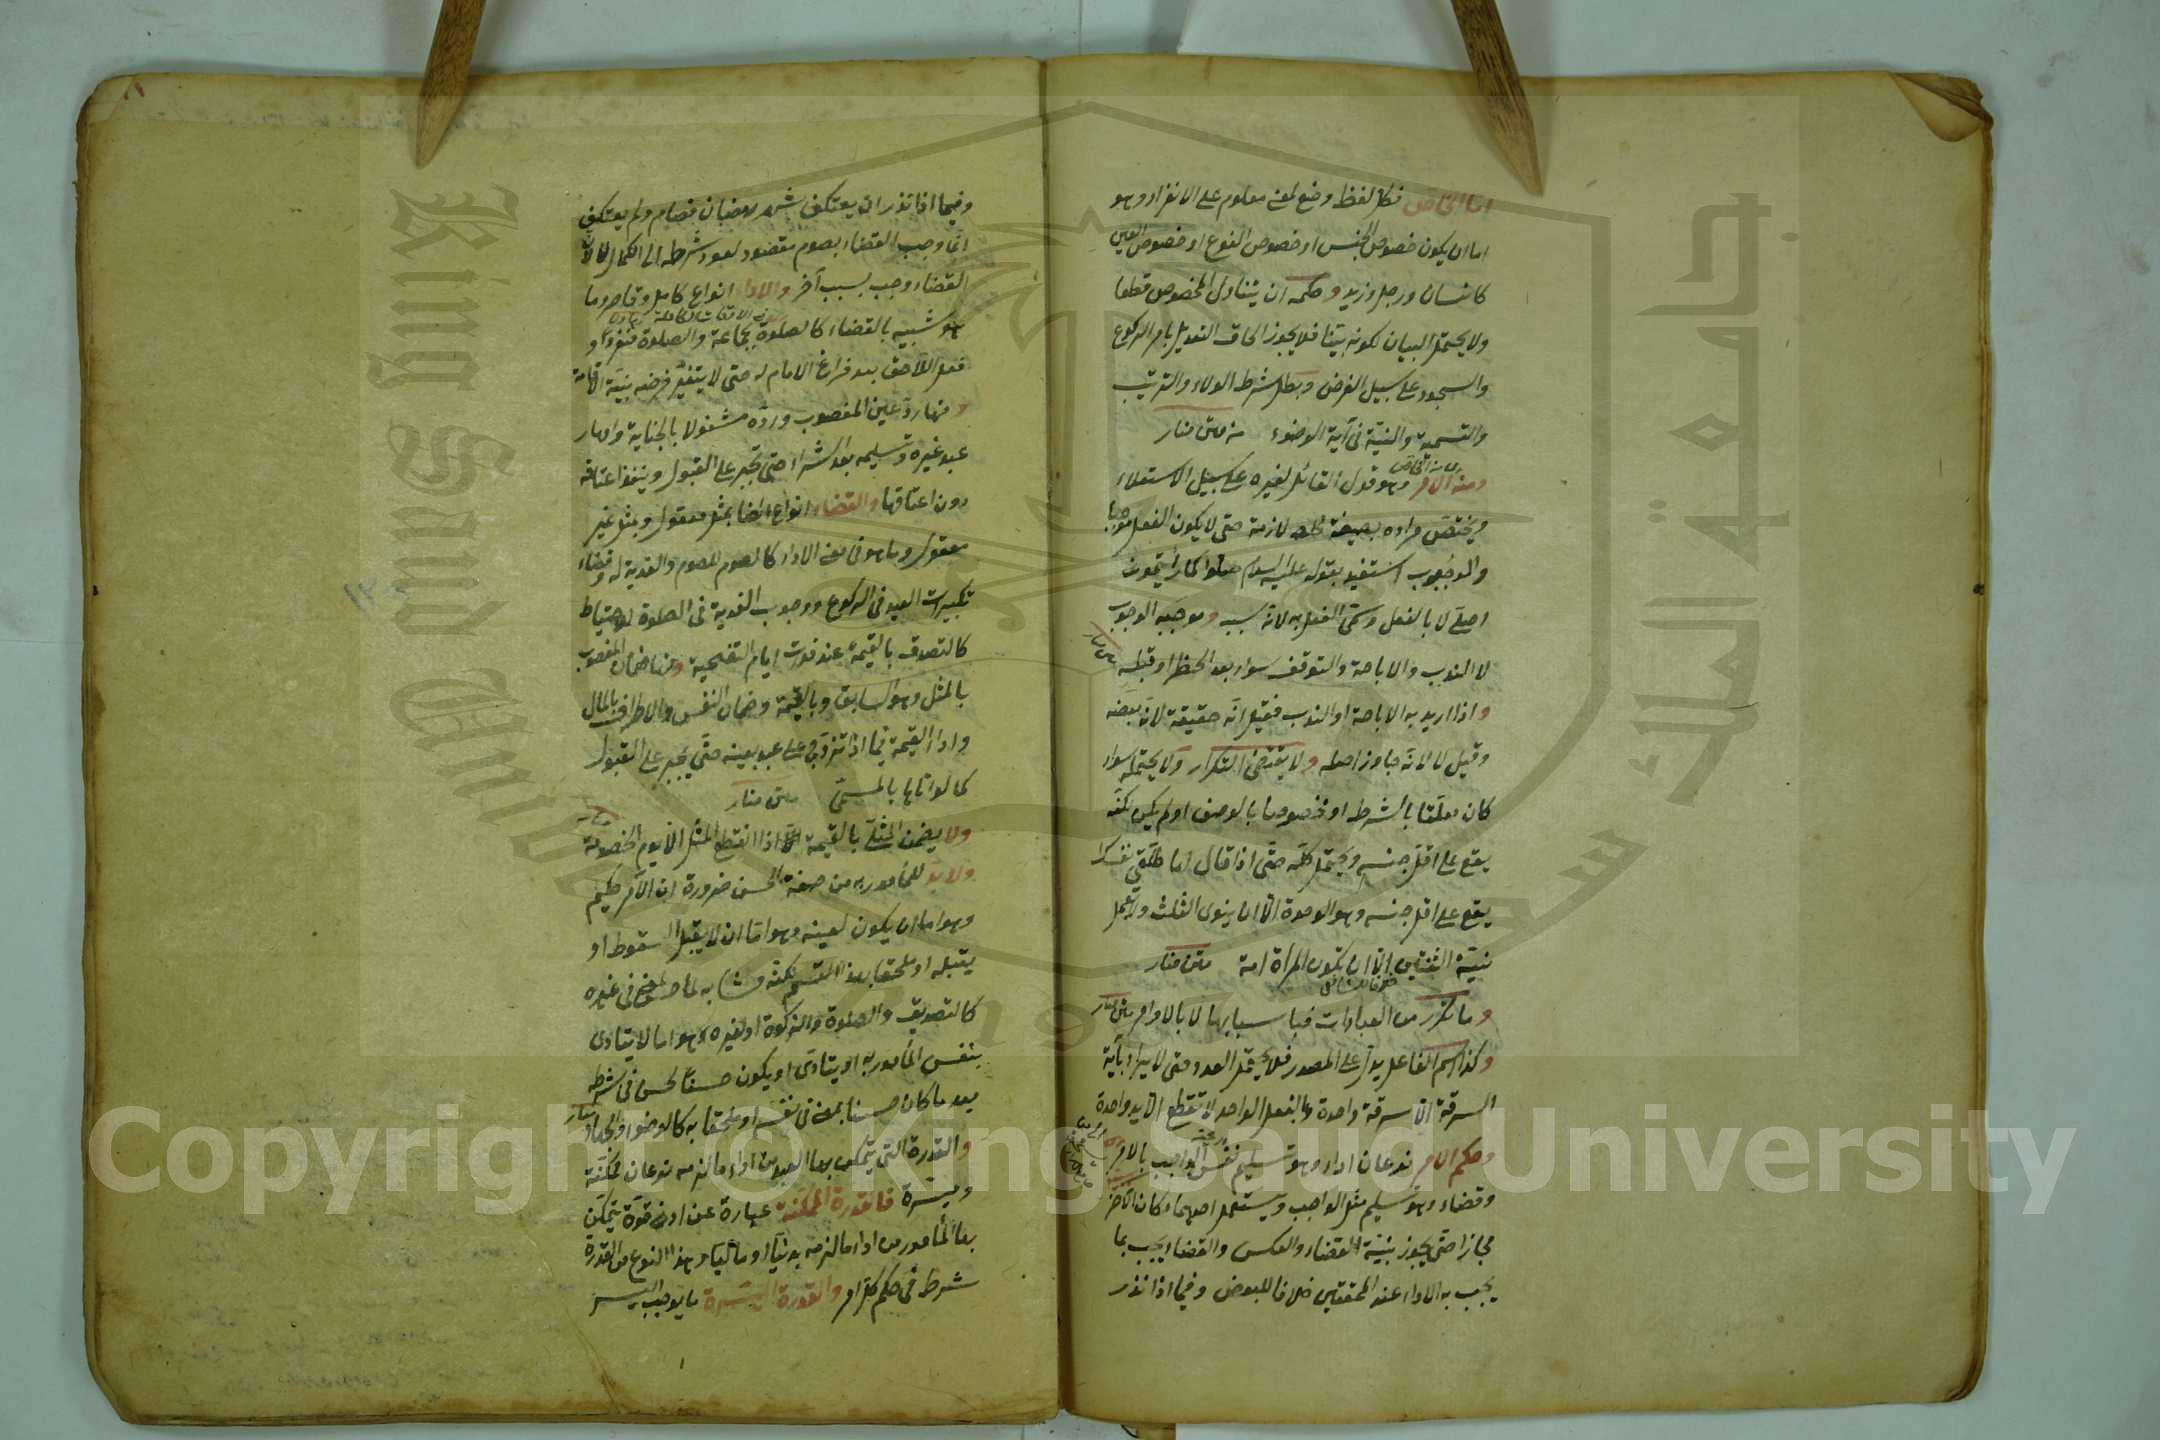 اما الخاص فكل لفظ وضع لمعنى معلوم على الانفراد وهو
اما ان يكون خصوص الجنس او خصوص النوع او خصوص العين
كانسان ورجل وزيد وحكمه ان يتناول المخصوص قطعا
ولا يحتمل البيان لكونه بيّنا فلا يجوز الحاق التعديل بامر الركوع
والسجود على سبيل الفرض وبطل شرط الولاء والترتيب
والتسمية والنيّة في آية الوضوء متن منار
ومنه الامر وهو قول القائل لغيره على سبيل الاستعلاء
ويختصّ مراده بصيغة لازمة حتى لا يكون الفعل موجبا
والوجوب استفيد بقوله عليه السلام صلوا كما رأيتموني
اصلّي لا بالفعل وسمّي الفعل به لانه سببه وموجبه الوجوب
لا الندب والاباحة والتوقف سواء بعد الحظر او قبله
واذا اريد به الاباحة او الندب فقيل انّه حقيقة لانّه بعضه
وقيل لا لانّه جاوز اصله ولا يقتضي التكرار ولا يحتمله سواء
كان معلّقا بالشرط او مخصوصا بالوصف او لم يكن لكنّه
يقع على اقلّ جنسه ويحتمل كلّه حتّى اذا قال لها طلّقي نفسك
يقع على اقل جنسه وهو الوحدة الّا ان ينوى الثلث ولا تعمل
نيّة الثنتين الّا ان تكون المرأة امة متن منار
وما تكرر من العبادات فباسبابها لا بالاوامر متن منار
وكذا اسم الفاعل يدلّ على المصدر فلا يحتمل العدد حتى لا يراد بآية
السرقة الّا سرقة واحدة وبالفعل الواحد لا تقطع الّا يد واحدة
وحكم الامر نوعان اداء وهو تسليم نفس الواجب بالامر
وقضاء وهو تسليم مثل الواجب ويستعمل احدهما مكان الآخر
مجازا حتى يجوز بنيّة القضاء والعكس والقضاء يجب بما
يجب به الاداء عند المحققين خلافا للبعض وفيما اذا نذر
وفيما اذا نذر ان يعتكف شهر رمضان فصام ولم يعتكف
انّما وجب القضاء بصوم مقصود لعود شرطه الى الكمال لا لانّ
القضاء وجب بسبب آخر والاداء انواع كامل وقاصر وما
هو شبيه بالقضاء كالصلوة بجماعة والصلوة منفردًا و
فعل اللّاحق بعد فراغ الامام له حتى لا يتغيّر فرضه بنيّة الاقامة
ومنها ردّ عين المغصوب وردّه مشغولا بالجناية وامهار
عبد غيره وتسليمه بعد الشراء حتى تجبر على القبول وينفذ اعتاقه
دون اعتاقها والقضاء انواع ايضا بمثل معقول وبمثل غير
معقول وما هو في معنى الاداء كالصوم للصوم والفدية له وقضاء
تكبيرات العيد في الركوع ووجوب الفدية في الصلوة للاحتياط
كالتصدق بالقيمة عند فوات ايام التضحية ومنها ضمان المغصوب
بالمثل وهو السابق وبالقيمة وضمان النفس والاطراف بالمال
واداء القيمة فيما اذا تزوّج على عبد بعينه حتّى يجبر على القبول
كما لو اتاها بالمسمّى متن منار
ولا يضمن المثليّ بالقيمة اذا انقطع المثل الّا يوم الخصومة
ولا بدّ للمأمور به من صفة الحسن ضرورة ان الآمر حكيم
وهو اما ان يكون لعينه وهو امّا ان لا يقبل السقوط او
يقبله او ملحقا بهذا القسم لكنّه مشابه لما حسن لمعنى في غيره
كالتصديق والصلوة والزكوة او لغيره وهو اما لا يتادى
بنفس المأمور به او يتادّى او يكون حسنا لحسن في شرطه
بعد ما كان حسنا بمعنى في نفسه او ملحقا به كالوضوء والجهاد
والقدرة التي يتمكن بها العبد من اداء ما لزمه نوعان ممكّنة
وميسّرة فالقدرة الممكّنة عبارة عن ادنى قوّة يتمكّن
بها المأمور من اداء ما لزمه بدنيّا او ماليّا وهذا النوع من القدرة
شرط في حكم كل امر والقدرة الميسّرة ما يوجب اليسر
Copyright © King Saud University
King Saud University
جامعة الملك سعود